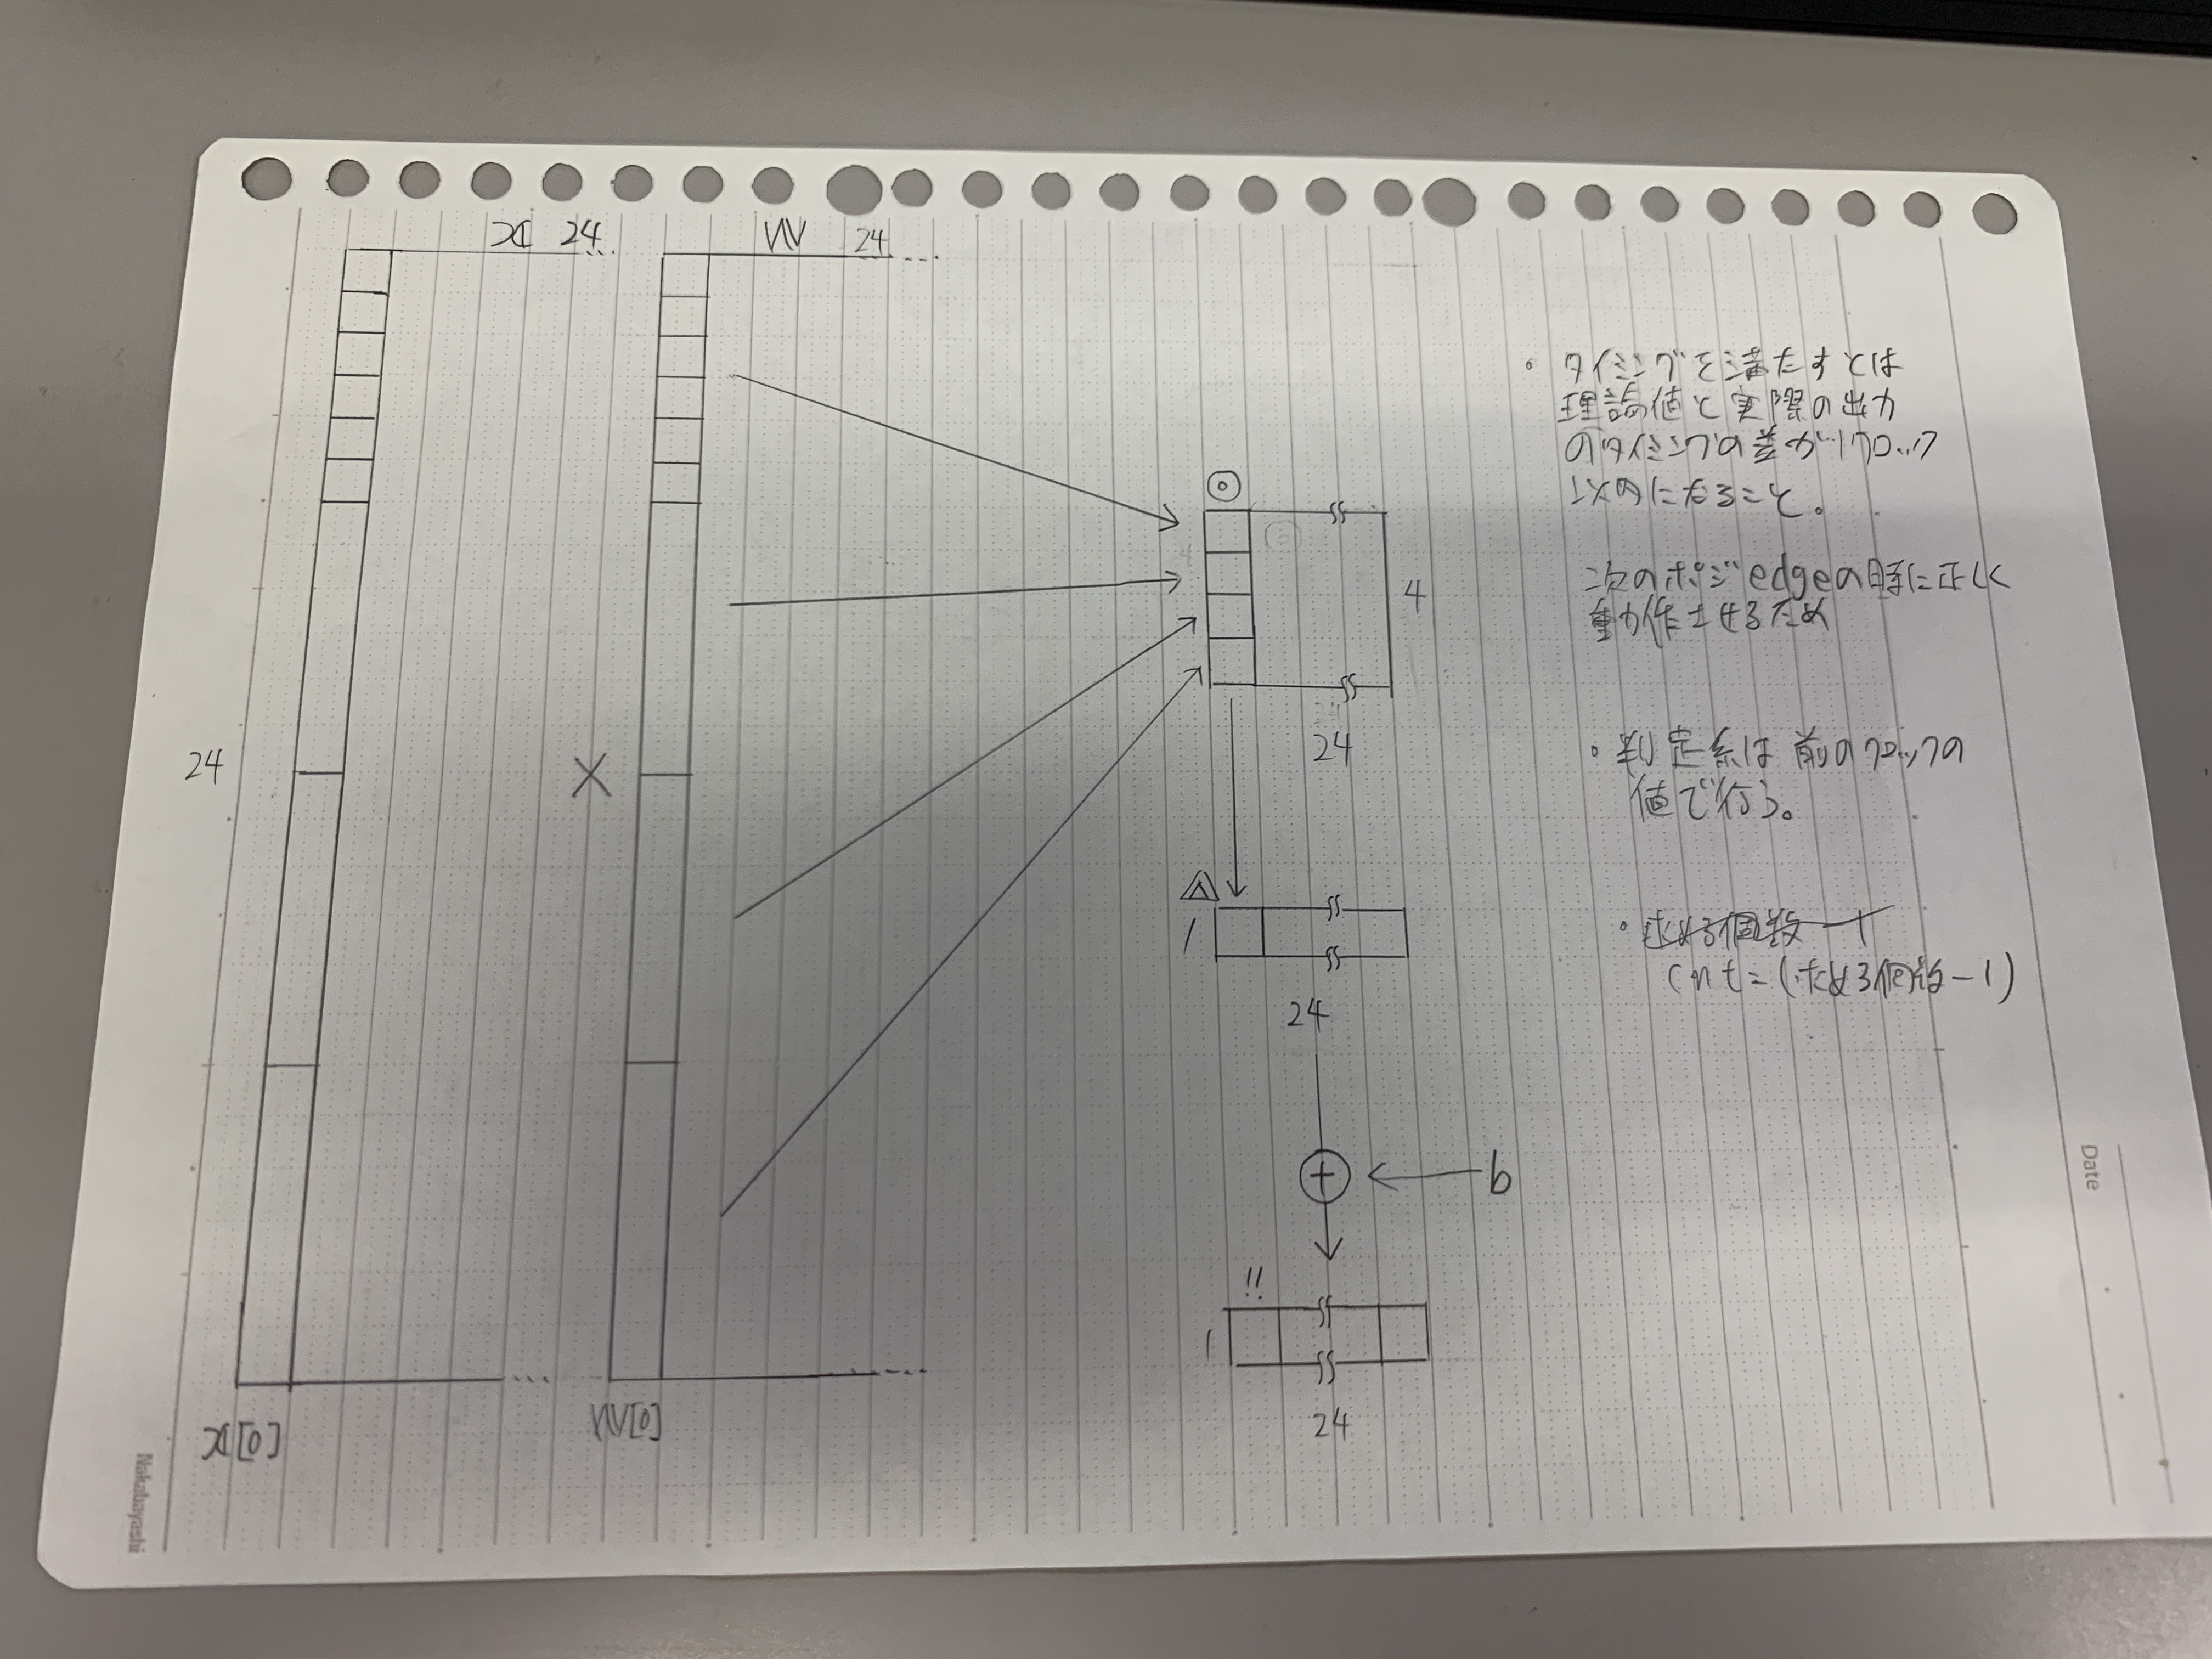 x 24
W 24
24
×
x[0]
W[0]
4
24
1
24
+ ← b
!!
1
24
・タイミングを満たすとは
理論値と実際の出力
のタイミングの差が1クロック
以内になること。
次のポジedgeの時に正しく
動作させるため
・判定系は前のクロックの
値で行う。
・求める個数-1
cnt=(求める個数-1)
Date
Nakabayashi